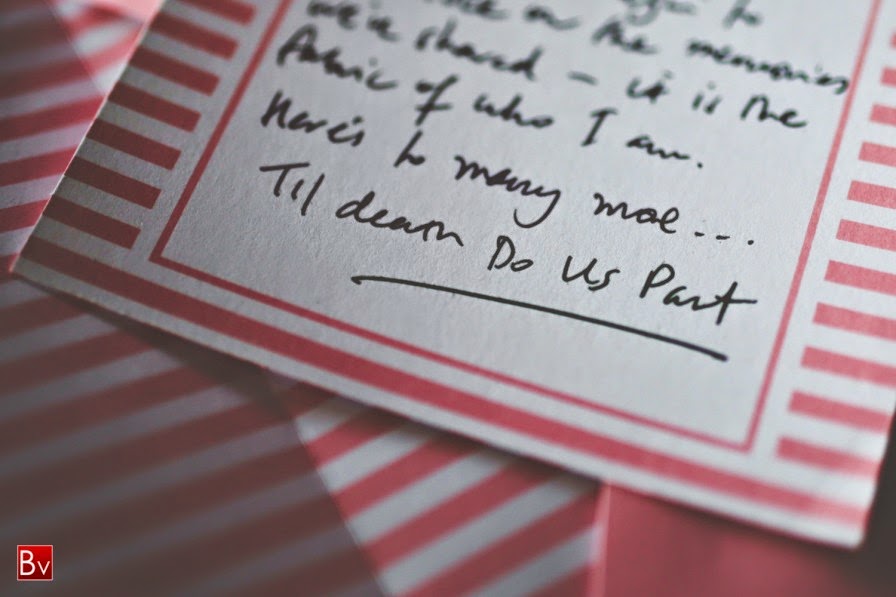 to
on the memories
we've shared – it is the
fabric of who I am.
Here's to many more...
Til death Do Us Part
Bv